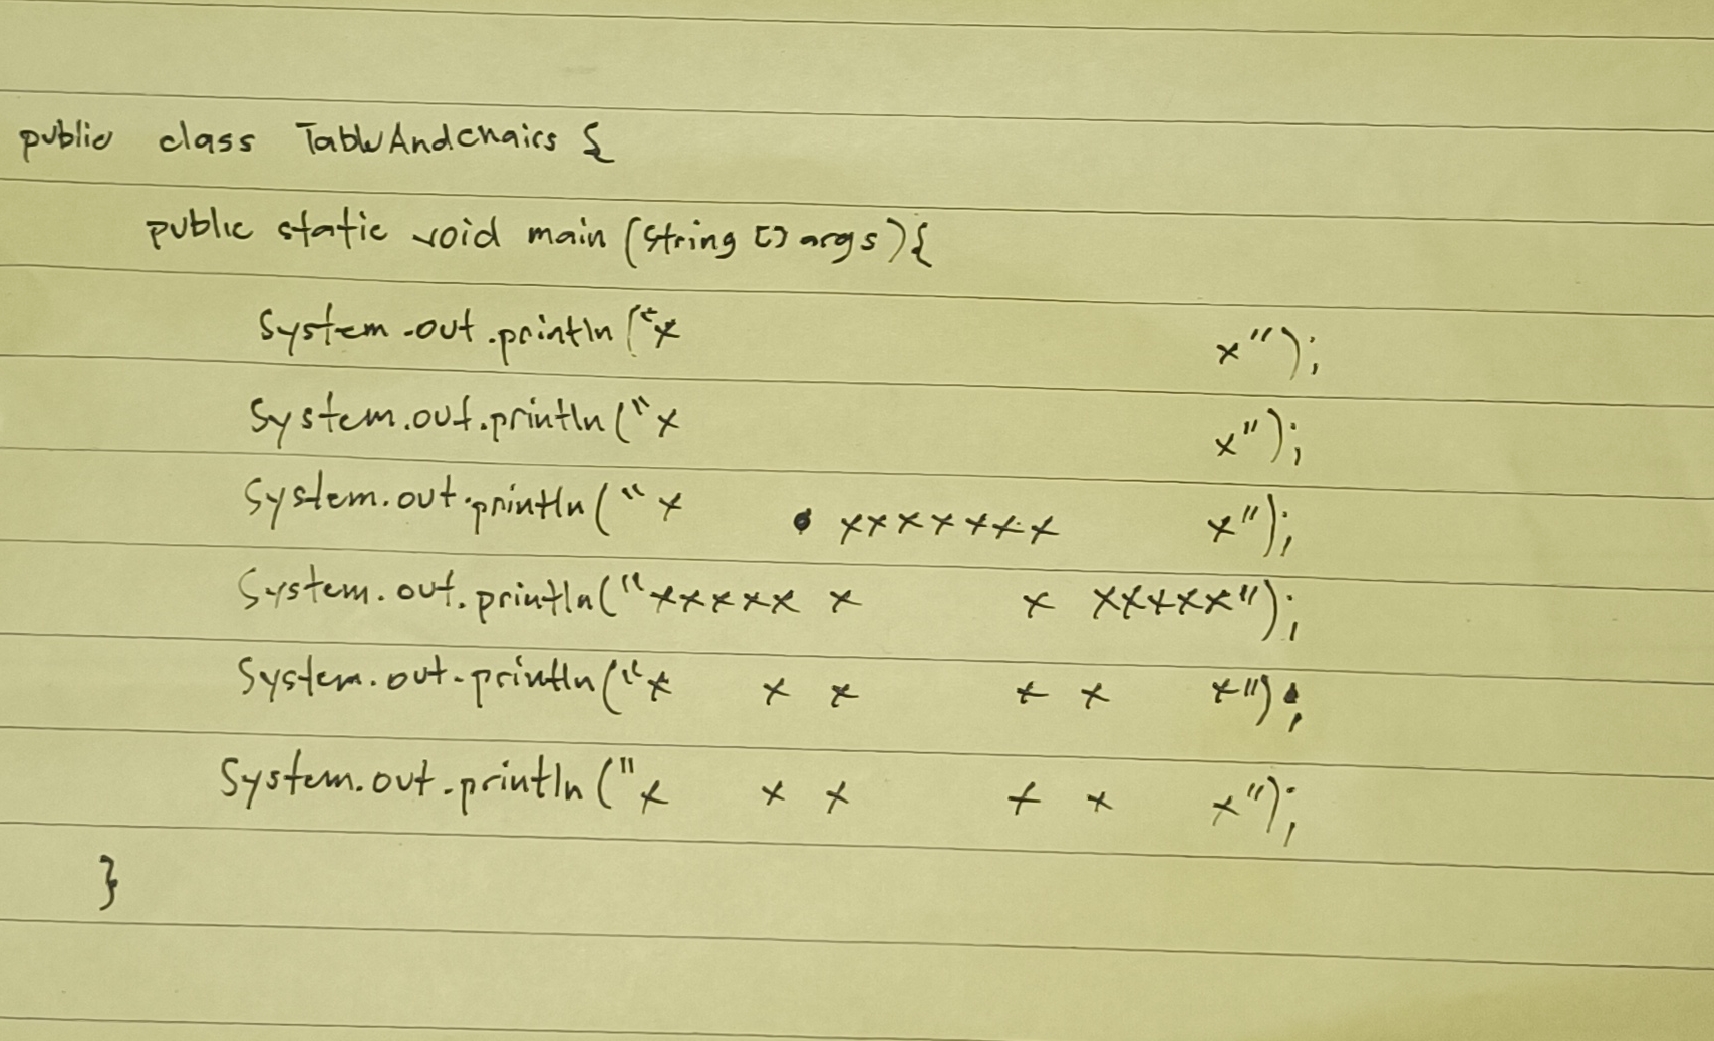 public class TableAndchairs {
    public static void main (String [] args) {
        System.out.println ("x                    x");
        System.out.println ("x                    x");
        System.out.println ("x     xxxxxxxx     x");
        System.out.println ("xxxxx x      x xxxxx");
        System.out.println ("x   x x      x x   x");
        System.out.println ("x   x x      x x   x");
}